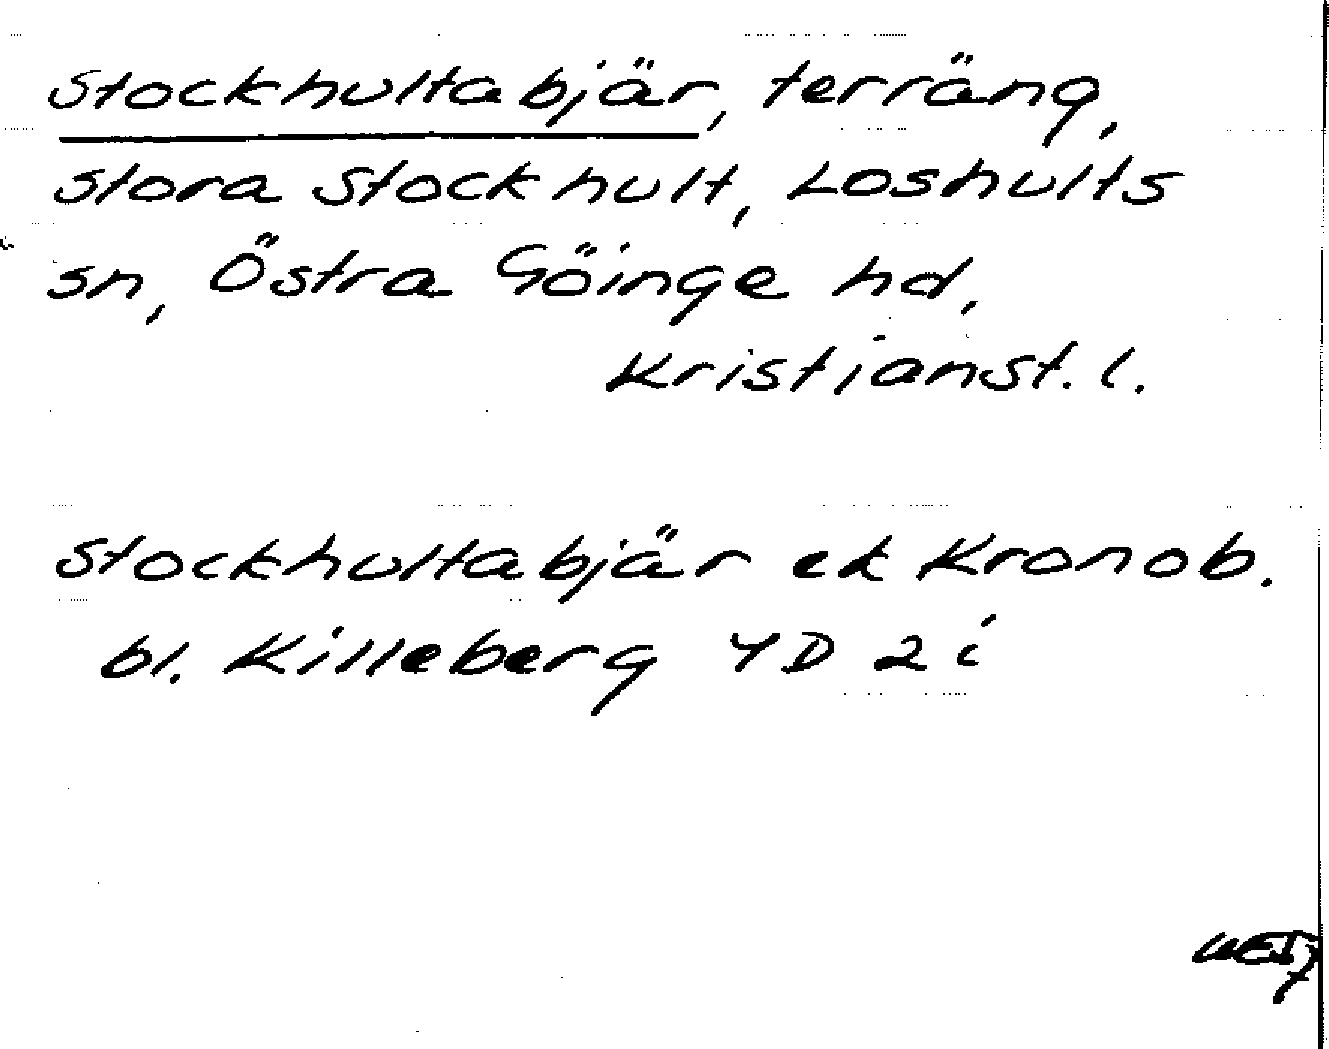 Stockhultabjär, terräng,
Stora Stockhult, Loshults
sn, Östra Göinge hd,
Kristianst. l.
Stockhultabjär ek Kronob.
bl. Killeberg 4D 2 i